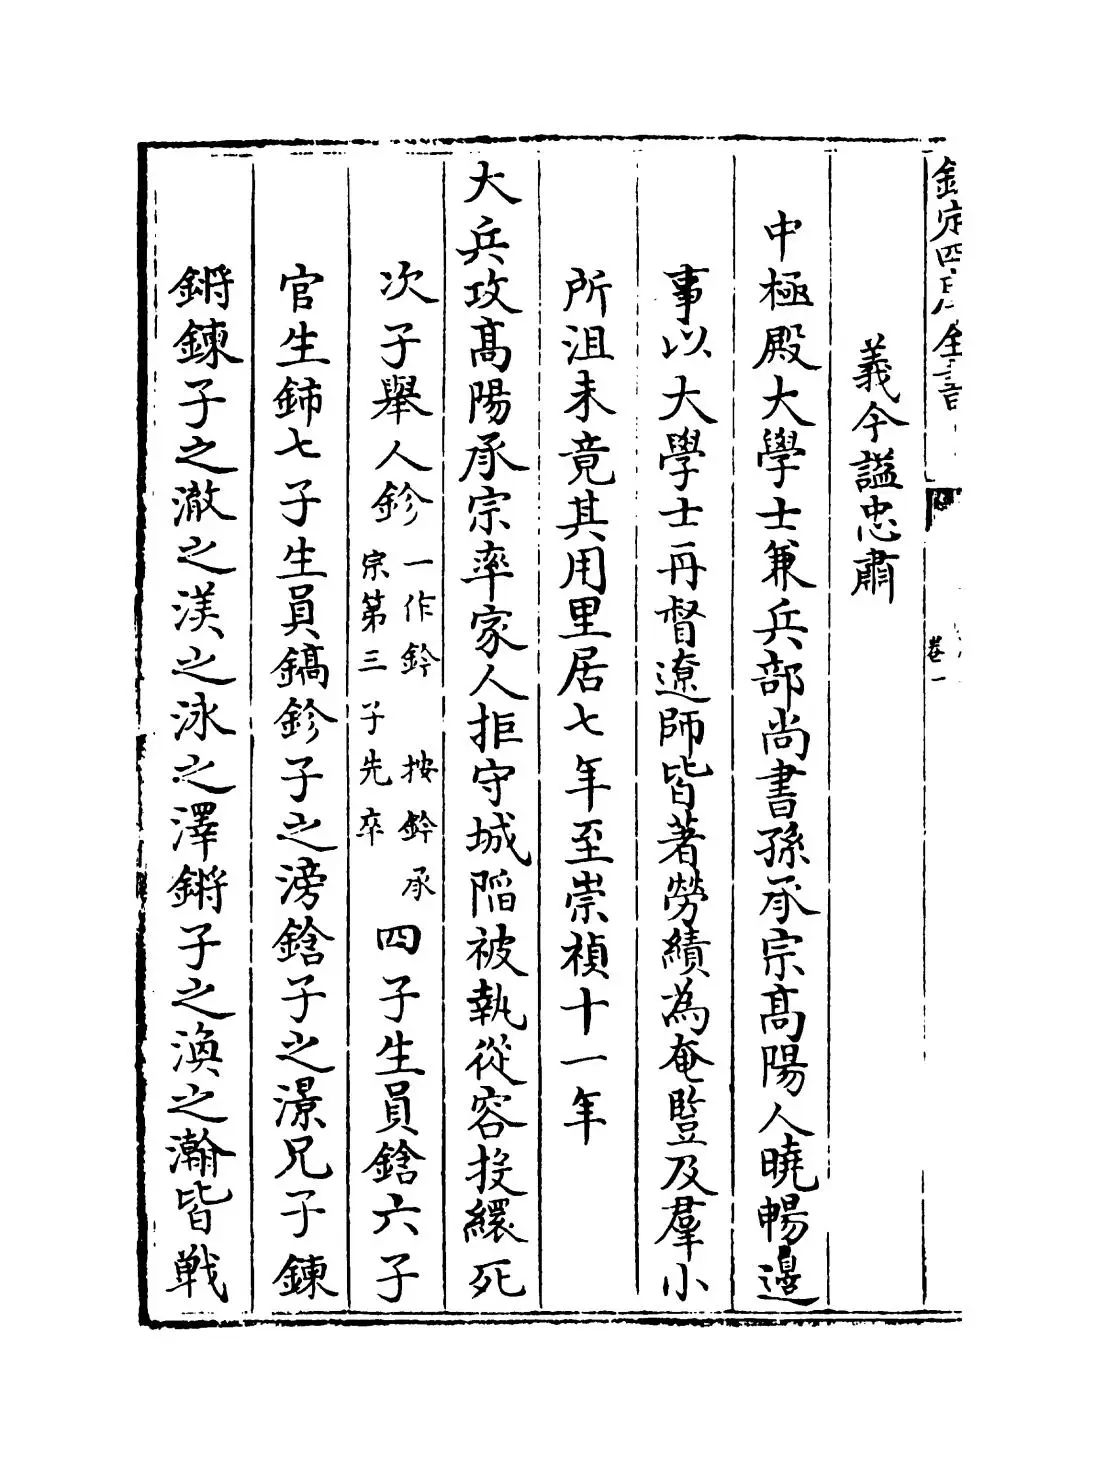 欽定四庫全書
卷一
義今謚忠肅
中極殿大學士兼兵部尚書孫承宗髙陽人曉暢邊
事以大學士再督遼師皆著勞績為奄豎及羣小
所沮未竟其用里居七年至崇禎十一年
大兵攻髙陽承宗率家人拒守城陷被執從容投繯死
次子舉人鉁一作鈐 按鈐承宗第三子先卒四子生員鋡六子
官生鈰七子生員鎬鉁子之滂鋡子之澋兄子鍊
鏘鍊子之澈之渼之泳之澤鏘子之渙之瀚皆戰